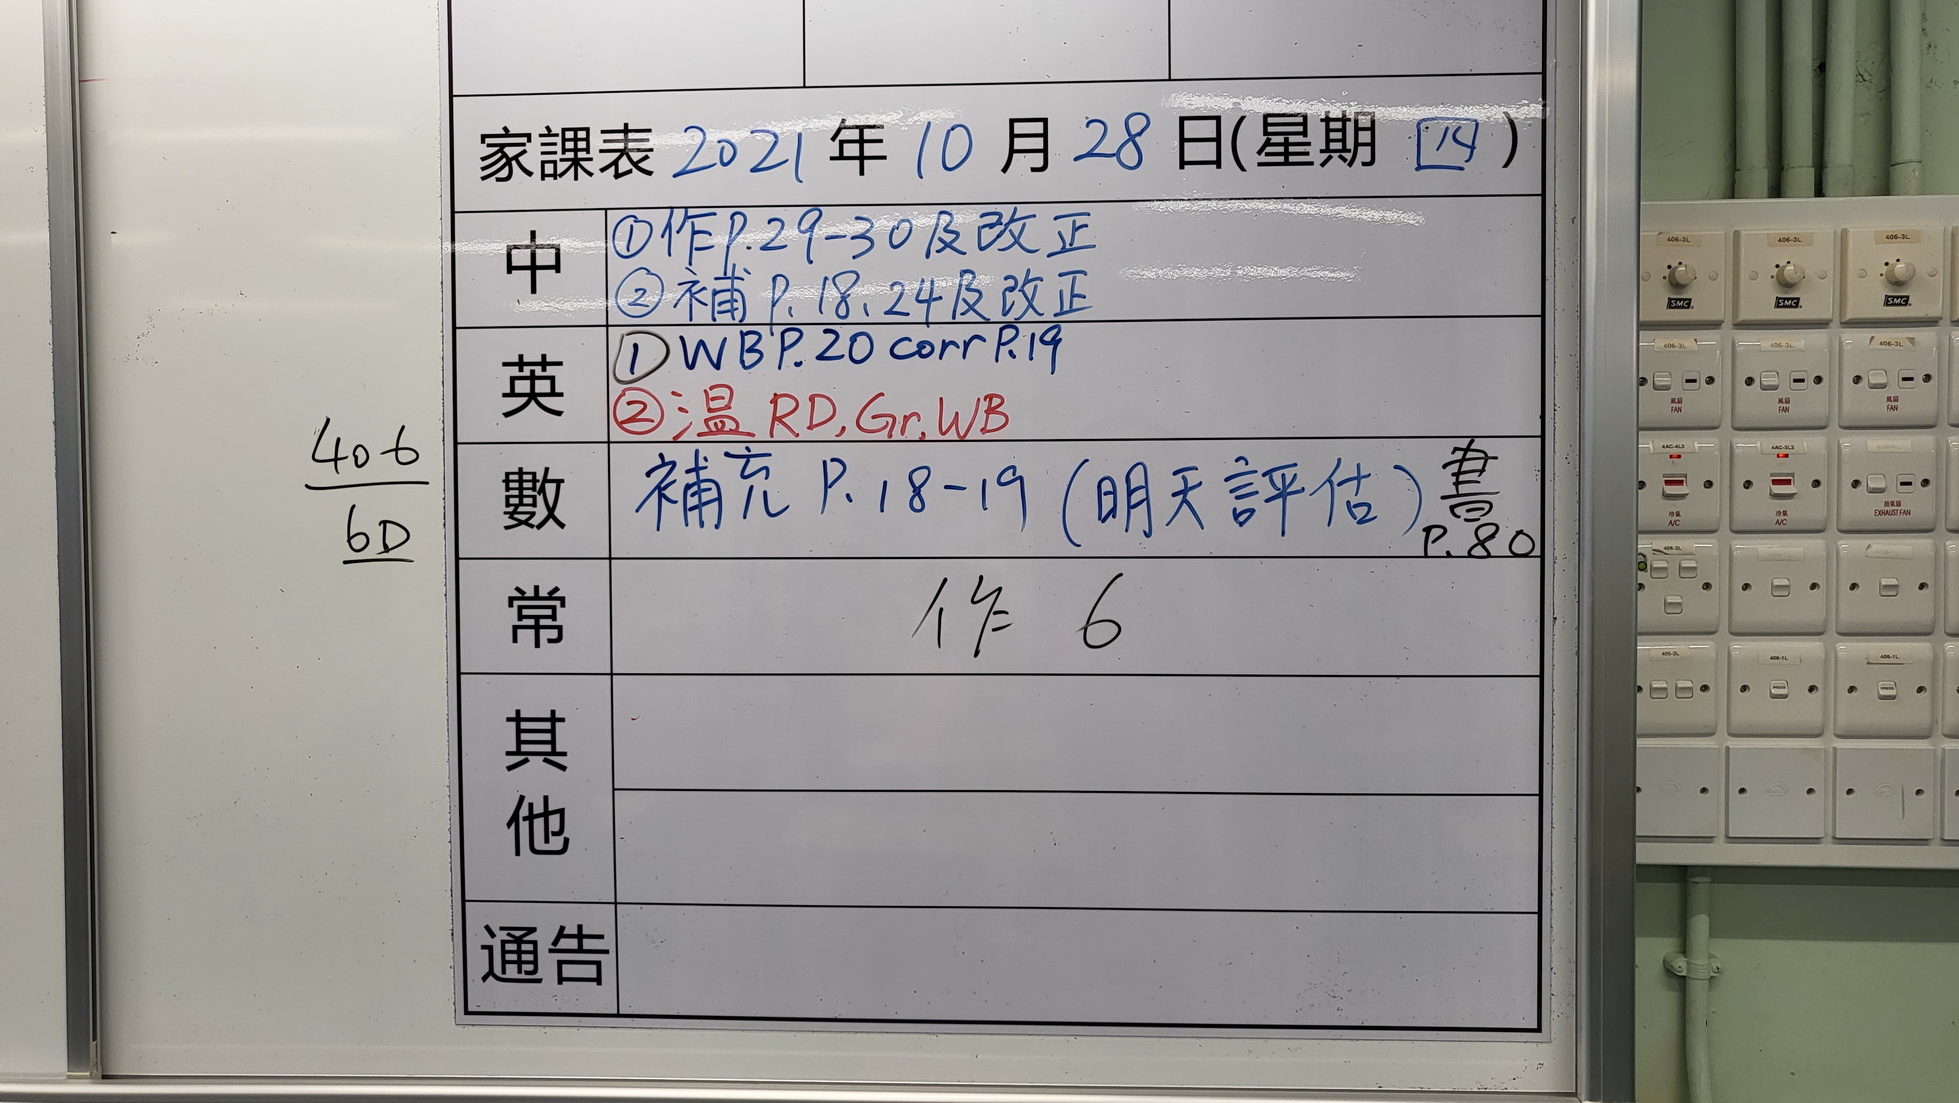 家課表 2021 年 10 月 28 日(星期 四)
中
①作P.29-30及改正
②補P.18、24及改正
英
①WB P.20 corr P.19
②溫 RD, Gr, WB
數
補充 P.18-19 (明天評估) 書
P.80
常
作 6
其他
通告
406
6D
406-3L
406-3L
406-3L
SMC
SMC
SMC
406-3L
406-3L
406-3L
風扇
FAN
風扇
FAN
風扇
FAN
4AC-4L3
4AC-5L3
冷氣
A/C
冷氣
A/C
抽氣扇
EXHAUST FAN
406-2L
406-1L
406-1L
PRESS
PRESS